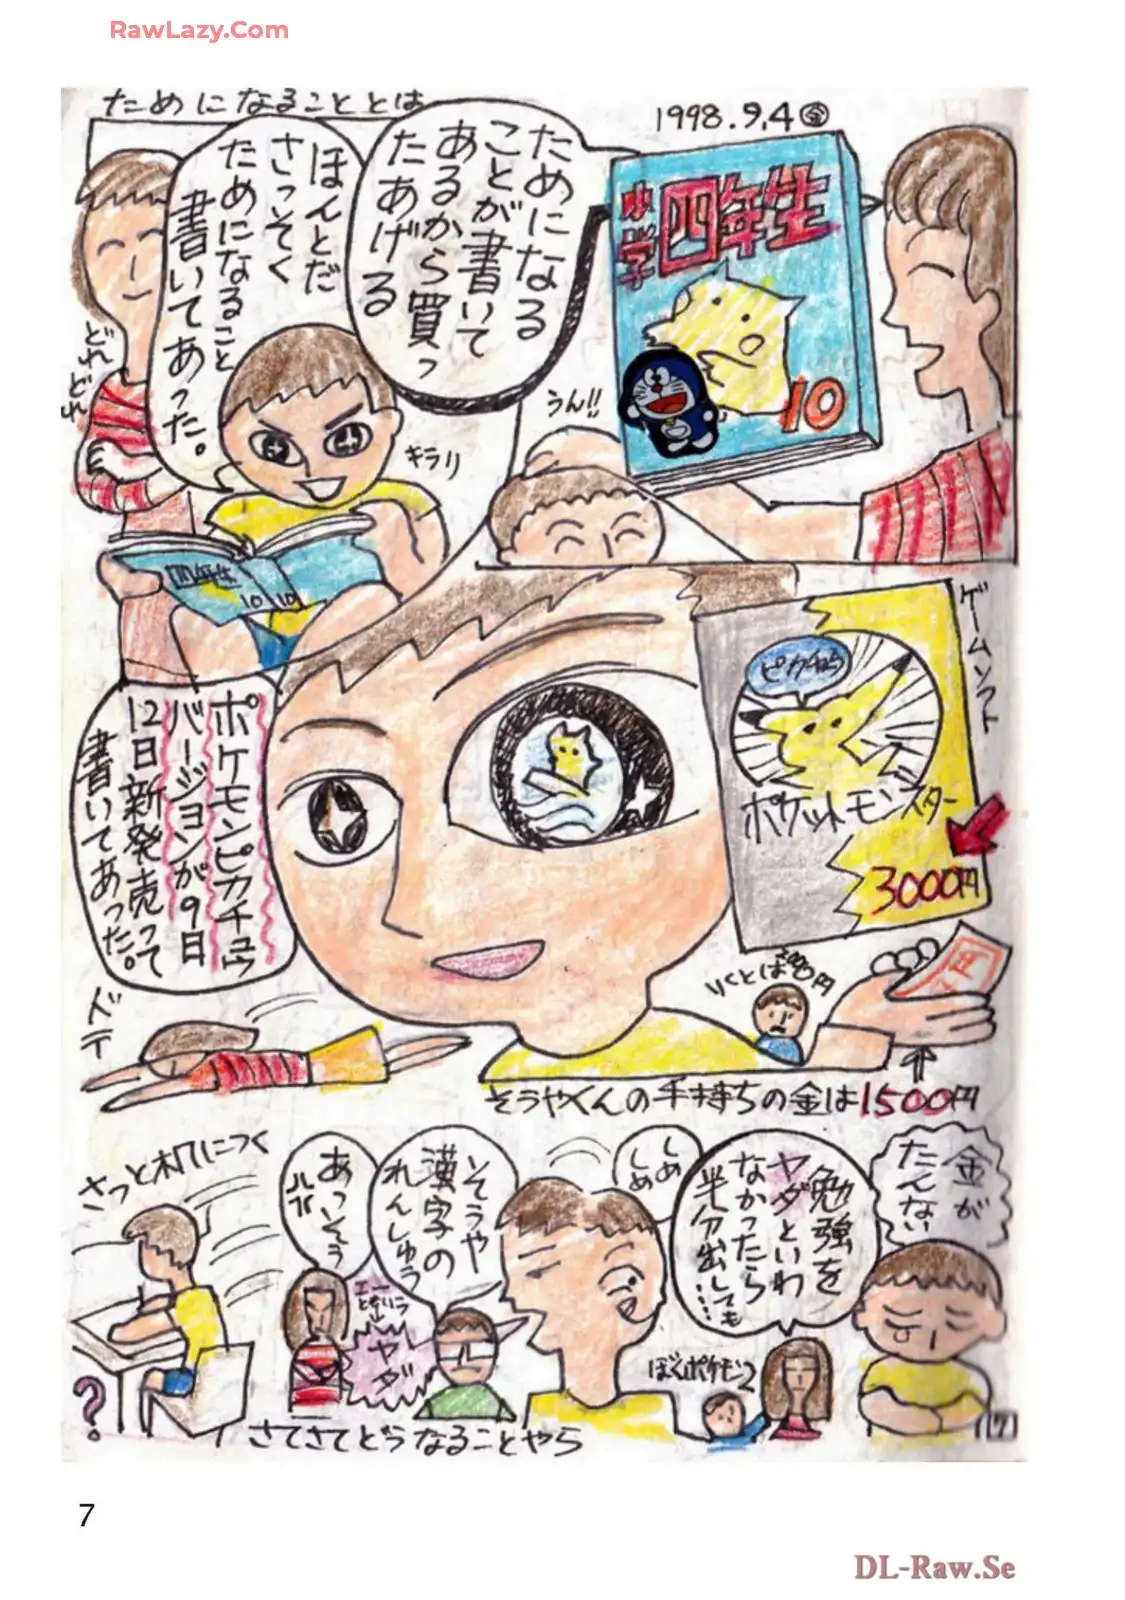 RawLazy.Com
ためになることとは
1998.9.4㊎
ためになる
ことが書いて
あるから買っ
たあげる
小学四年生
10
うん!!
ほんとだ
さっそく
ためになること
書いてあった。
どれ
どれ
キラリ
四年生
10
10
ゲームソフト
ピカチュウ
ポケットモンスター
3000円
ポケモンピカチュウ
バージョンが9日
12日新発売って
書いてあった。
ドテ
そうやくんの手持ちの金は1500円
金が
たんない
勉強を
ヤダといわ
なかったら
半分出しても……
しめ
しめ
ぼくポケモン2
そうや
漢字の
れんしゅう
あっそう
ヤダ
さっと机につく
?
さてさてどうなることやら
7
7
DL-Raw.Se